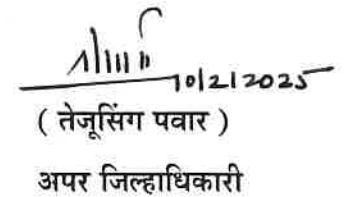 10/2/2025
( तेजूसिंग पवार )
अपर जिल्हाधिकारी